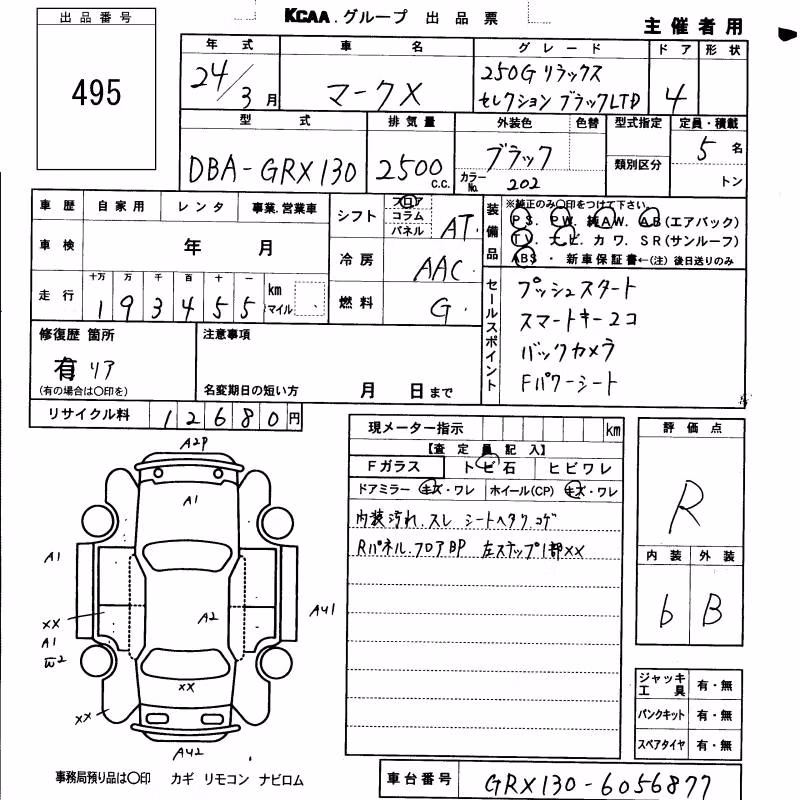 出品番号
495
KCAA.グループ 出品票
主催者用
年式 車名 グレード ドア 形状
24/3月 マークX 250G リラックス
セレクション ブラックLTD 4
型式 排気量 外装色 色替 型式指定 定員・積載
DBA-GRX130 2500 c.c. ブラック 類別区分 5名
カラーNo. 202 トン
車歴 自家用 レンタ 事業.営業車
車検 年 月
走行 十万 万 千 百 十 一
193455 km マイル
シフト フロア コラム パネル AT
冷房 AAC
燃料 G
装備品
※純正のみ〇印をつけて下さい。
PS. PW. 純AW. AB(エアバック)
TV. ナビ カワ. SR(サンルーフ)
ABS ・ 新車保証書←(注)後日送りのみ
セールスポイント
プッシュスタート
スマートキー2コ
バックカメラ
Fパワーシート
修復歴 箇所
有 リア
(有の場合は〇印を)
注意事項
名変期日の短い方 月 日まで
リサイクル料 12680円
現メーター指示 km
【査定員記入】
Fガラス トビ石 ヒビワレ
ドアミラー キズ・ワレ ホイール(CP) キズ・ワレ
内装汚れ.スレ シートヘタリ コゲ
Rパネル.フロアBP 左ステップ1部XX
評価点
R
内装 外装
b B
ジャッキ工具 有・無
パンクキット 有・無
スペアタイヤ 有・無
A2P
A1
A1
A2
A41
XX
A1
W2
XX
XX
A42
事務局預り品は〇印 カギ リモコン ナビロム
車台番号 GRX130-6056877